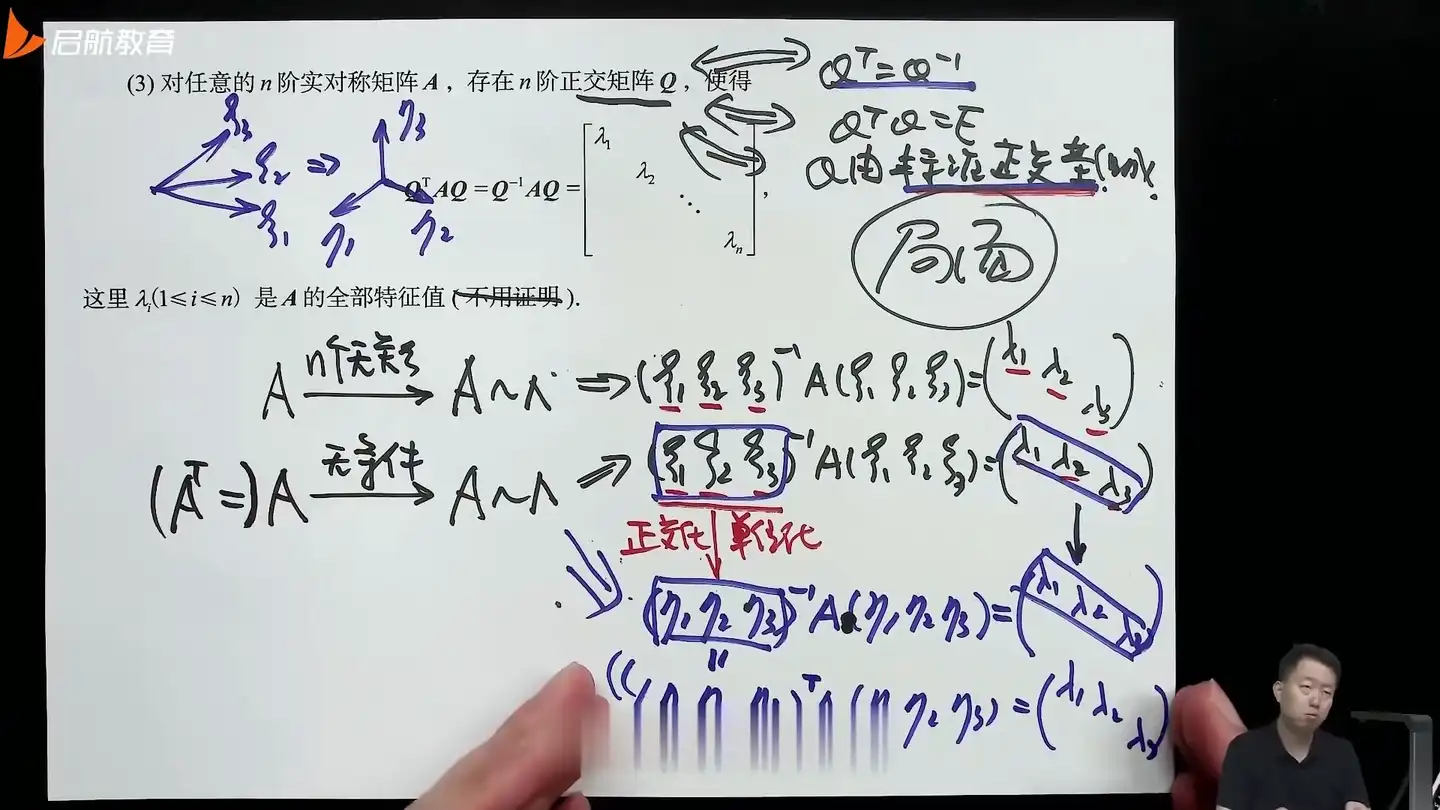 启航教育
(3) 对任意的 n 阶实对称矩阵 A，存在 n 阶正交矩阵 Q，使得
Qᵀ=Q⁻¹
QᵀQ=E
Q由标准正交基
局面
ξ₃
ξ₂ ⇒
ξ₁
η₃
η₁ η₂
QᵀAQ = Q⁻¹AQ = [λ₁ λ₂ ⋱ λₙ],
这里 λᵢ(1≤i≤n) 是 A 的全部特征值 (不用证明).
A n个无关ξ → A~Λ ⇒ (ξ₁ ξ₂ ξ₃)⁻¹ A (ξ₁ ξ₂ ξ₃) = (λ₁ λ₂ λ₃)
(Aᵀ=)A 无条件 → A~Λ ⇒ (ξ₁ ξ₂ ξ₃)⁻¹ A (ξ₁ ξ₂ ξ₃) = (λ₁ λ₂ λ₃)
正交化 ↓ 单位化
(η₁ η₂ η₃)⁻¹ A (η₁ η₂ η₃) = (λ₁ λ₂ λ₃)
η₂ η₃) = (λ₁ λ₂ λ₃)